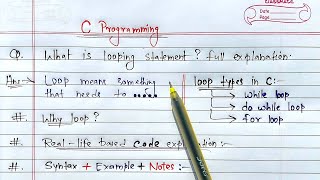 Date
Page
C Programming
Q. What is looping statement? full explanation.
Ans:- Loop means something
that needs to .....
loop types in C:-
while loop
do while loop
for loop
#. Why loop?
#. Real-life based code explanation:-
#. Syntax + Example + Notes:-